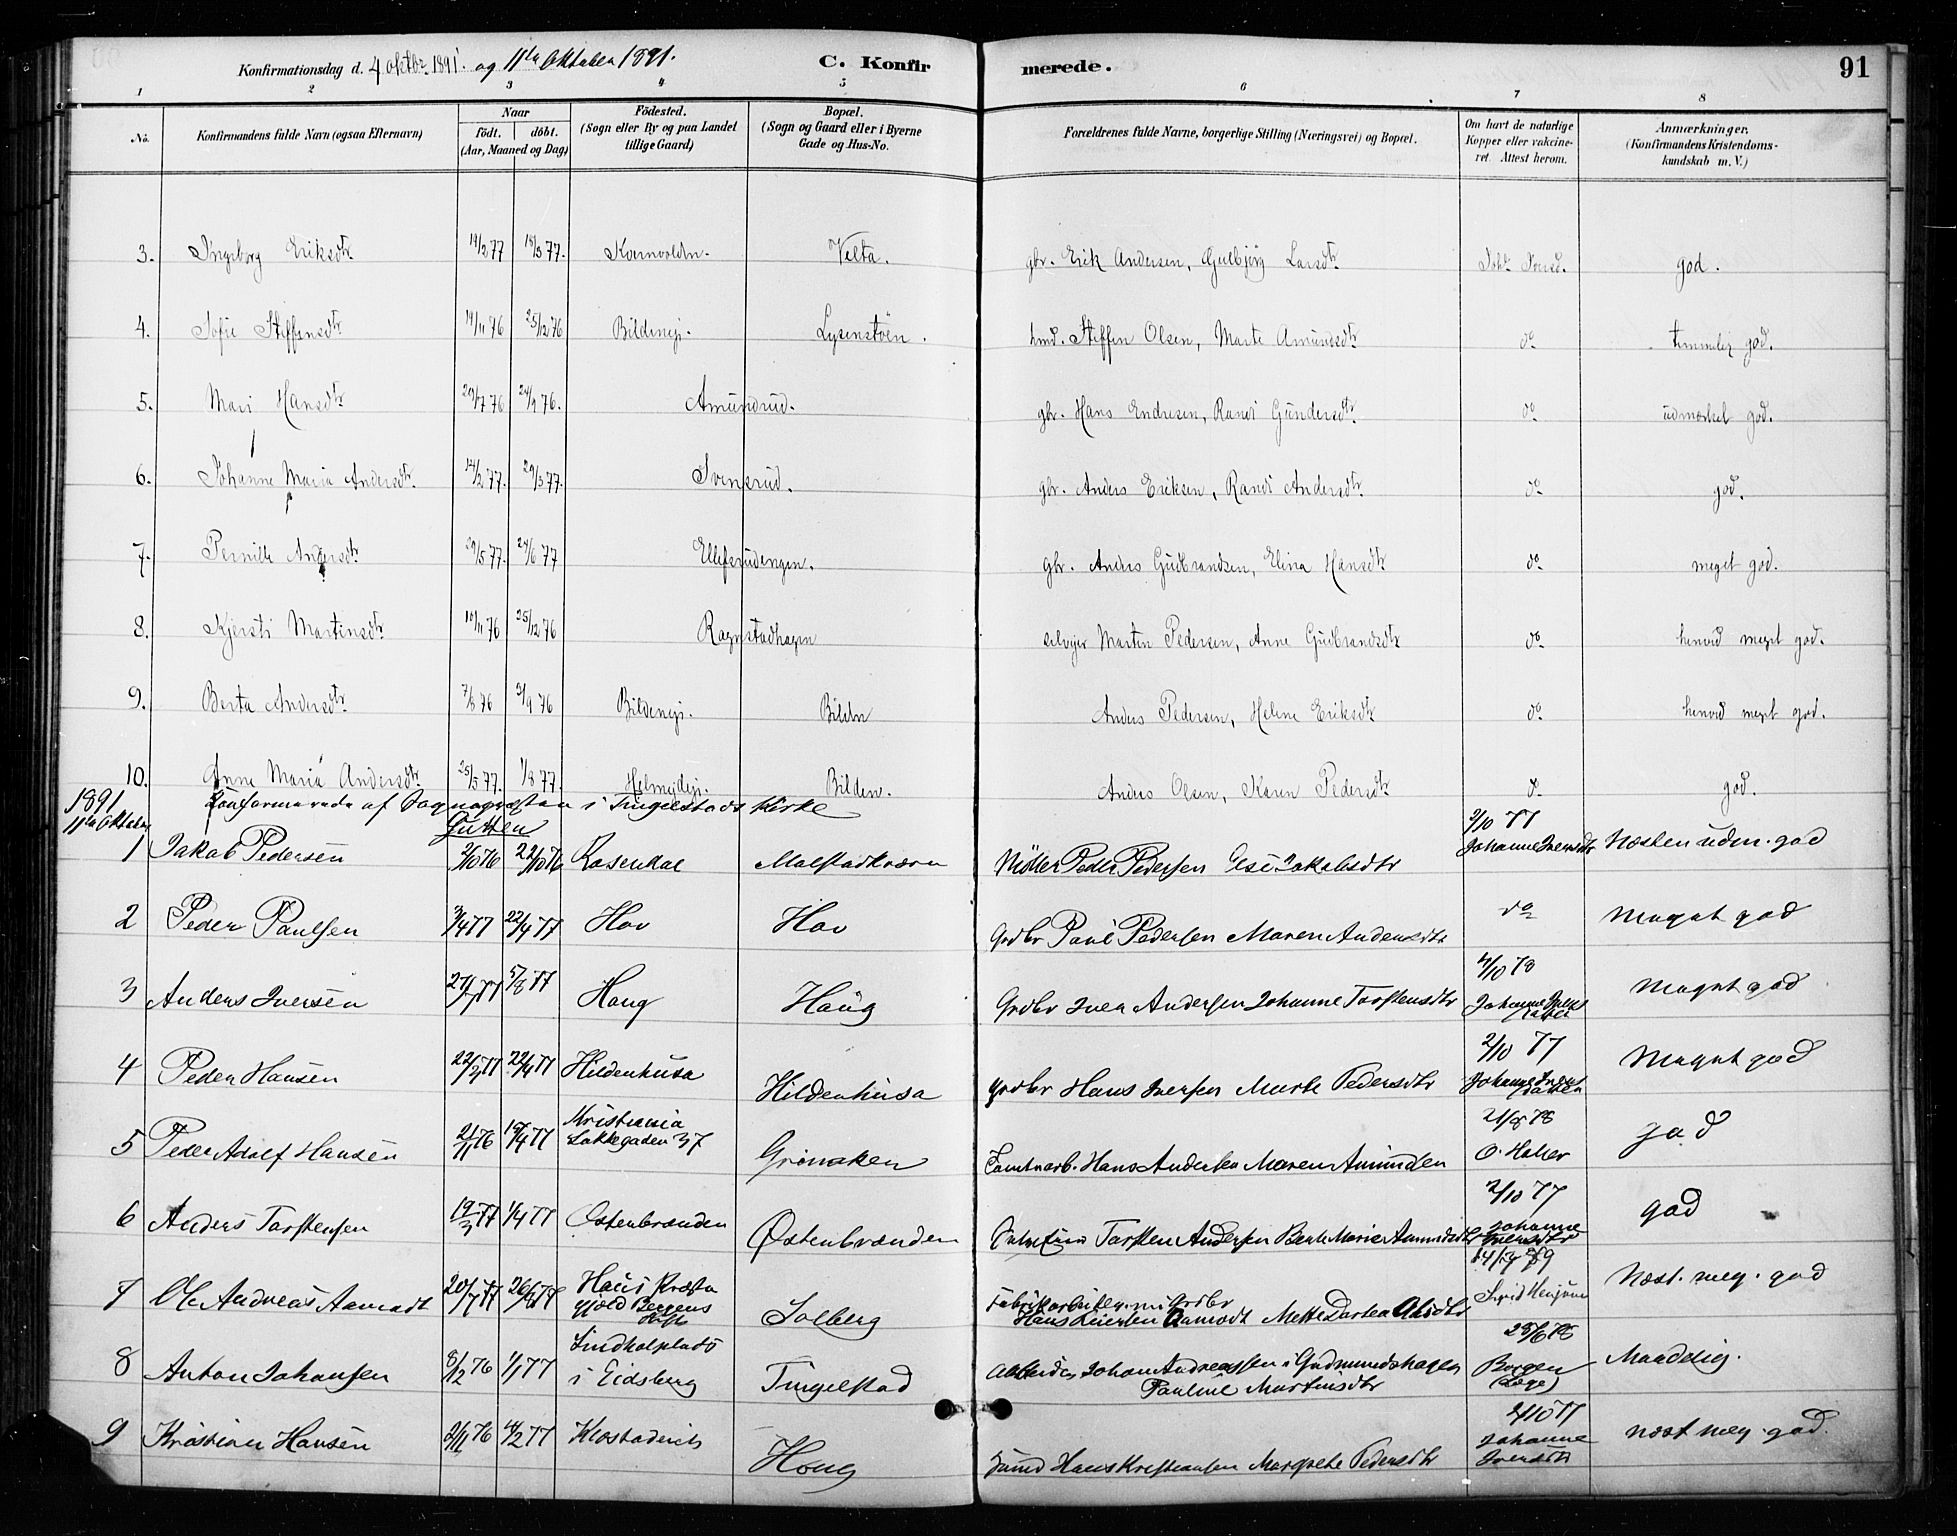 Konfirmationsdag d. 4 oktbr. 1891. og 11te Oktober 1891. C. Konfirmerede. 91
1 2 3 4 5 6 7 8
No. Konfirmandens fulde Navn (ogsaa Efternavn) Naar födt. döbt. (Aar, Maaned og Dag) Födested. (Sogn eller By og paa Landet tillige Gaard) Bopæl. (Sogn og Gaard eller i Byerne Gade og Hus-No. Forældrenes fulde Navne, borgerlige Stilling (Næringsvei) og Bopæl. Om havt de naturlige Kopper eller vakcineret. Attest herom. Anmærkninger. (Konfirmandens Kristendomskundskab m. V.)
3. Ingeborg Eriksdtr 19/2 77 18/3 77. Velta. gbr. Erik Andersen, Gulbjörg Larsdtr god.
4. Sofie Steffensdtr 19/11 76 25/12 76 Bildeneje. Lysenstöen. hmd. Steffen Olsen, Marte Amundsdtr do temmelig god.
5. Mari Hansdtr 29/7 76 24/9 76. Amundrud. gbr. Hans Endresen, Randi Gundersdtr do udmærket god.
6. Johanne Maria Andersdtr. 14/2 77 29/3 77. Svensrud. gbr. Anders Eriksen, Randi Andersdtr do god.
7. Pernille Andersdtr 29/5 77. 24/6 77 Ellefsrudengen. gbr. Anders Gudbrandsen, Elina Hansdtr do meget god.
8. Kjersti Martinsdtr 10/11 76 25/12 76 Ragnstadhagen selvejer Martin Pedersen, Anne Gudbrandsdtr do henved meget god.
9. Berta Andersdtr. 7/8 76 3/9 76 Bildeneje. Bilden Anders Pedersen, Helene Eriksdtr do henved meget god.
10. Anne Maria Andersdtr. 25/5 77. 1/8 77. Bilden. Anders Olsen, Karen Pedersdtr do god.
1891 11te Oktober Konfirmerede af Sognepresten i Tingelstads Kirke
Gutter
1 Jakob Pedersen 2/10 76 22/10 76 Rosendal Malstadkværn Möller Peder Pedersen Elsi Jakobsdtr 2/10 77 Johanne Iversdtr Næsten udm. god
2 Peder Paulsen 3/4 77 22/4 77 Hov Hov Grdbr Paul Pedersen Maren Andersdtr do Meget god
3 Anders Iversen 5/8 77 Haug Haug Grdbr Iver Andersen Johanne Torstensdtr 4/10 78 Johanne Iversdatter Meget god
4 Peder Hansen 22/2 77 22/4 77 Hildenhusa Hildenhusa grdbr Hans Iversen Marte Pedersdtr 2/10 77 Johanne Iversdatter Meget god
5 Peder Adolf Hansen 2/11 76 15/4 77 Kristiania Lakkegaden 37 Grinaker Tomtearb. Hans Andersen Maren Amundsen 21/8 78 O. Holier god
6 Anders Torstensen 19/3 77 1/4 77 Østenbrænden Østenbrænden Torsten Andersen Berte Marie Amundsdtr 2/10 77 Johanne Iversdtr god
7 Ole Andreas Aamodt 20/7 77 26/8 77 Haus Præstegjæld Bergens Stift Solberg Fabrikarbeider nu Grdbr Hans Iversen Aamodt Mette Dortea Olsdtr Næst. meg. god
8 Anton Johansen 8/12 76 1/1 77 Lindholplads i Eidsberg Tingelstad Arbeider Johan Andreassen i Gudmundshagen Pauline Martinsdtr 28/6 78 Borgen (Læge) Maadelig.
9 Kristian Hansen 2/11 76 4/2 77 Klostadeiet Houg Hans Kristiansen Margrete Pedersdtr 2/10 77 Johanne Iversdtr næst meg. god.